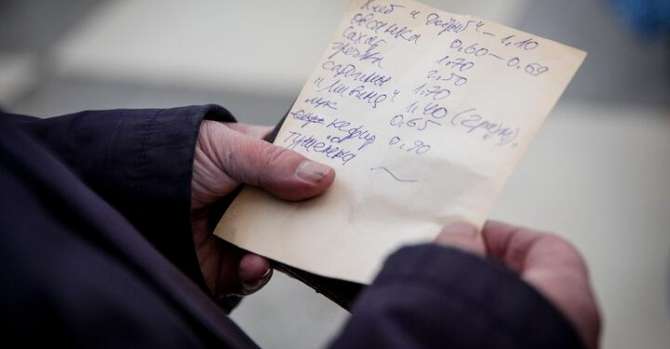 Хлеб и "Добрый" – 1,10
овсянка 0.60 – 0.69
сахар 1.70
гречка 2.50
сардины 1.70
"Ливия" 1.40
лук 0.65
кефир 0.90
тушёнка ~